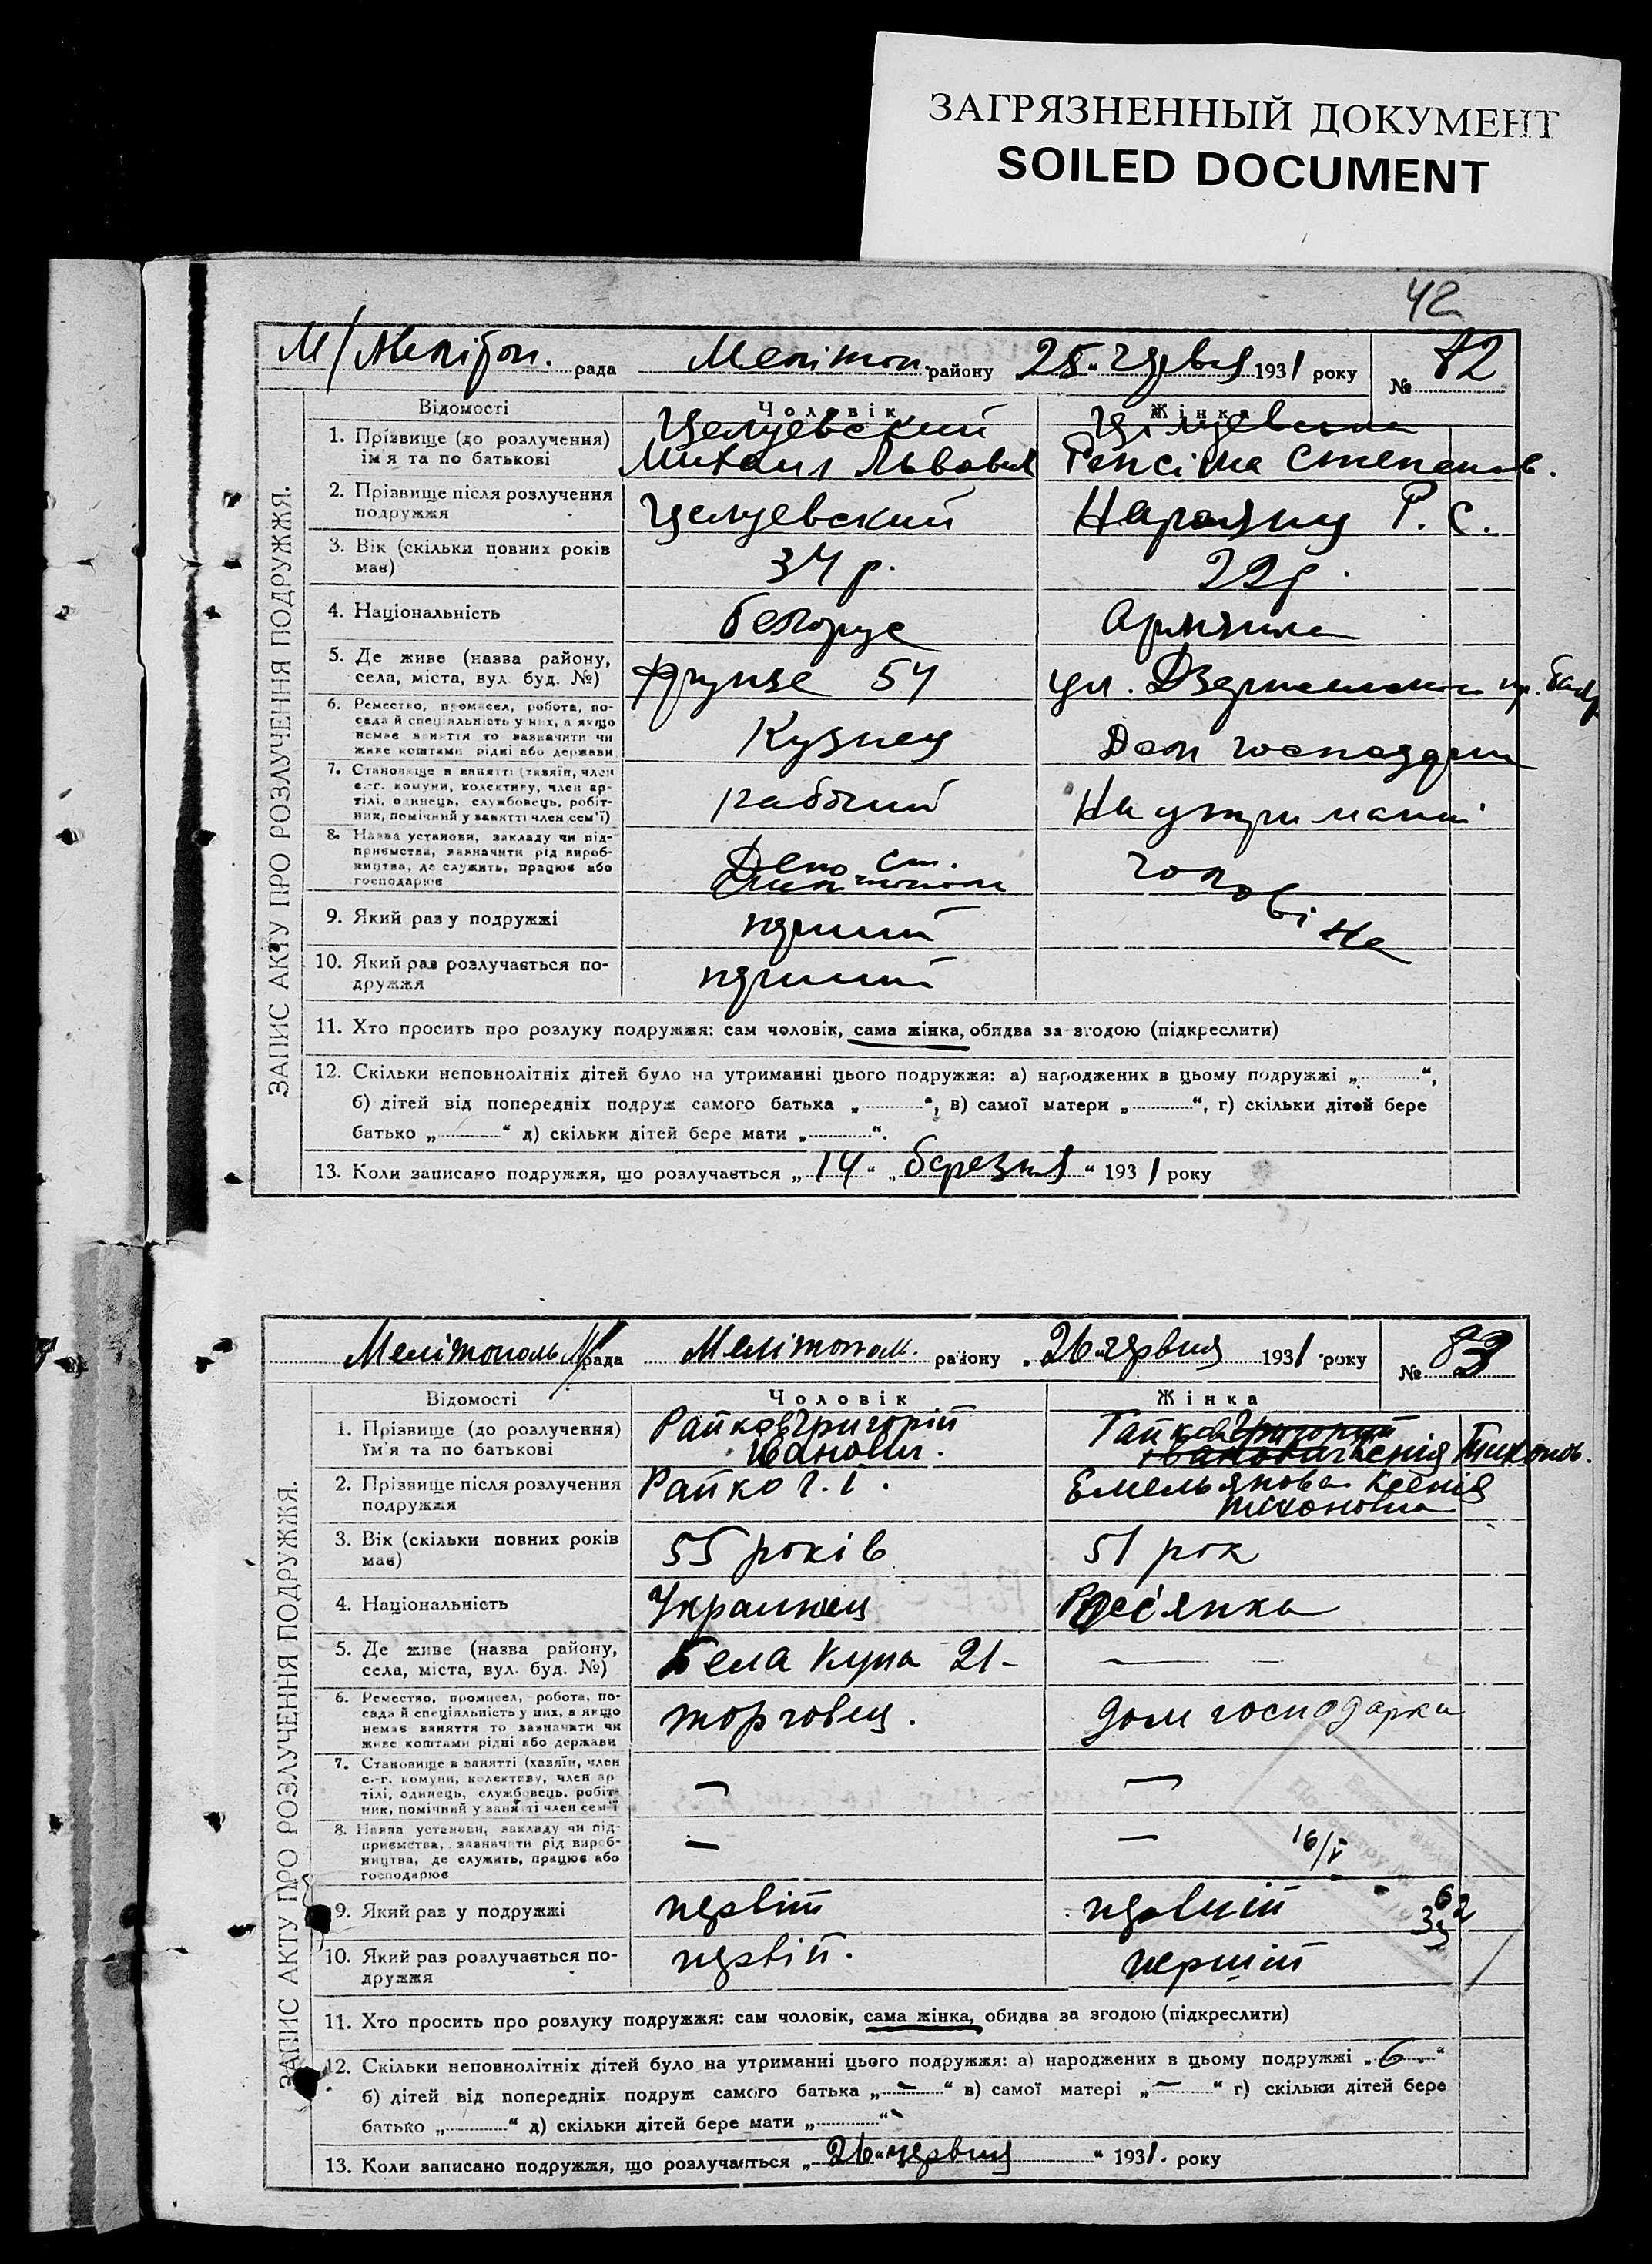 ЗАГРЯЗНЕННЫЙ ДОКУМЕНТ
SOILED DOCUMENT
42
М/Мелітоп. рада Мелітоп. району 25 " червня 1931 року № 82
ЗАПИС АКТУ ПРО РОЗЛУЧЕННЯ ПОДРУЖЖЯ.
Відомості Чоловік Жінка
1. Прізвище (до розлучення) ім'я та по батькові
Целуевский
Михаил Львович
Степанов.
2. Прізвище після розлучення подружжя
Целуевский
Р. С.
3. Вік (скільки повних років має)
34 р.
22 р.
4. Національність
белорус
Армянка
5. Де живе (назва району, села, міста, вул. буд. №)
Фрунзе 54
ул.
6. Ремество, промисел, робота, посада й спеціяльність у них, а якщо немає заняття то зазначити чи живе коштами рідні або держави
Кузнец
Дом
7. Становище в занятті (хазяїн, член с.-г. комуни, колективу, член артілі, одинець, службовець, робітник, помічний у занятті член сем'ї)
рабочий
На утриманні
8. Назва установи, закладу чи підприємства, зазначити рід виробництва, де служить, працює або господарює
Депо ст.
чоловіка
9. Який раз у подружжі
перший
10. Який раз розлучається подружжя
перший
11. Хто просить про розлуку подружжя: сам чоловік, сама жінка, обидва за згодою (підкреслити)
12. Скільки неповнолітніх дітей було на утриманні цього подружжя: а) народжених в цьому подружжі „ “,
б) дітей від попередніх подруж самого батька „ “, в) самої матери „ “, г) скільки дітей бере
батько „ “ д) скільки дітей бере мати „ “.
13. Коли записано подружжя, що розлучається „ 14 “ „ березня “ 1931 року
Мелітополь М/рада Мелітопол. району „ 26 " червня 1931 року № 83
ЗАПИС АКТУ ПРО РОЗЛУЧЕННЯ ПОДРУЖЖЯ.
Відомості Чоловік Жінка
1. Прізвище (до розлучення) їм'я та по батькові
Рапко Григорій
Іванович.
Тихонов.
2. Прізвище після розлучення подружжя
Рапко Г. І.
Емельянова Ксенія
Тихоновна
3. Вік (скільки повних років має)
55 років
51 рок
4. Національність
Украинец
Росіянка
5. Де живе (назва району, села, міста, вул. буд. №)
Бела Куна 21 -
—
6. Ремество, промисел, робота, посада й спеціяльність у них, а якщо немає заняття то зазначити чи живе коштами рідні або держави
торговец.
дом господарка
7. Становище в занятті (хазяїн, член с.-г. комуни, колективу, член артілі, одинець, службовець, робітник, помічний у занятті член сем'ї
—
—
8. Назва установи, закладу чи підприємства, зазначити рід виробництва, де служить, працює або господарює
—
—
16/V
9. Який раз у подружжі
первій
10. Який раз розлучається подружжя
первій.
першій
11. Хто просить про розлуку подружжя: сам чоловік, сама жінка, обидва за згодою (підкреслити)
12. Скільки неповнолітніх дітей було на утриманні цього подружжя: а) народжених в цьому подружжі „ 6 “
б) дітей від попередніх подруж самого батька „ — “ в) самої матері „ — “ г) скільки дітей бере
батько „ “ д) скільки дітей бере мати „ “
13. Коли записано подружжя, що розлучається „ 26 " червня “ 1931. року